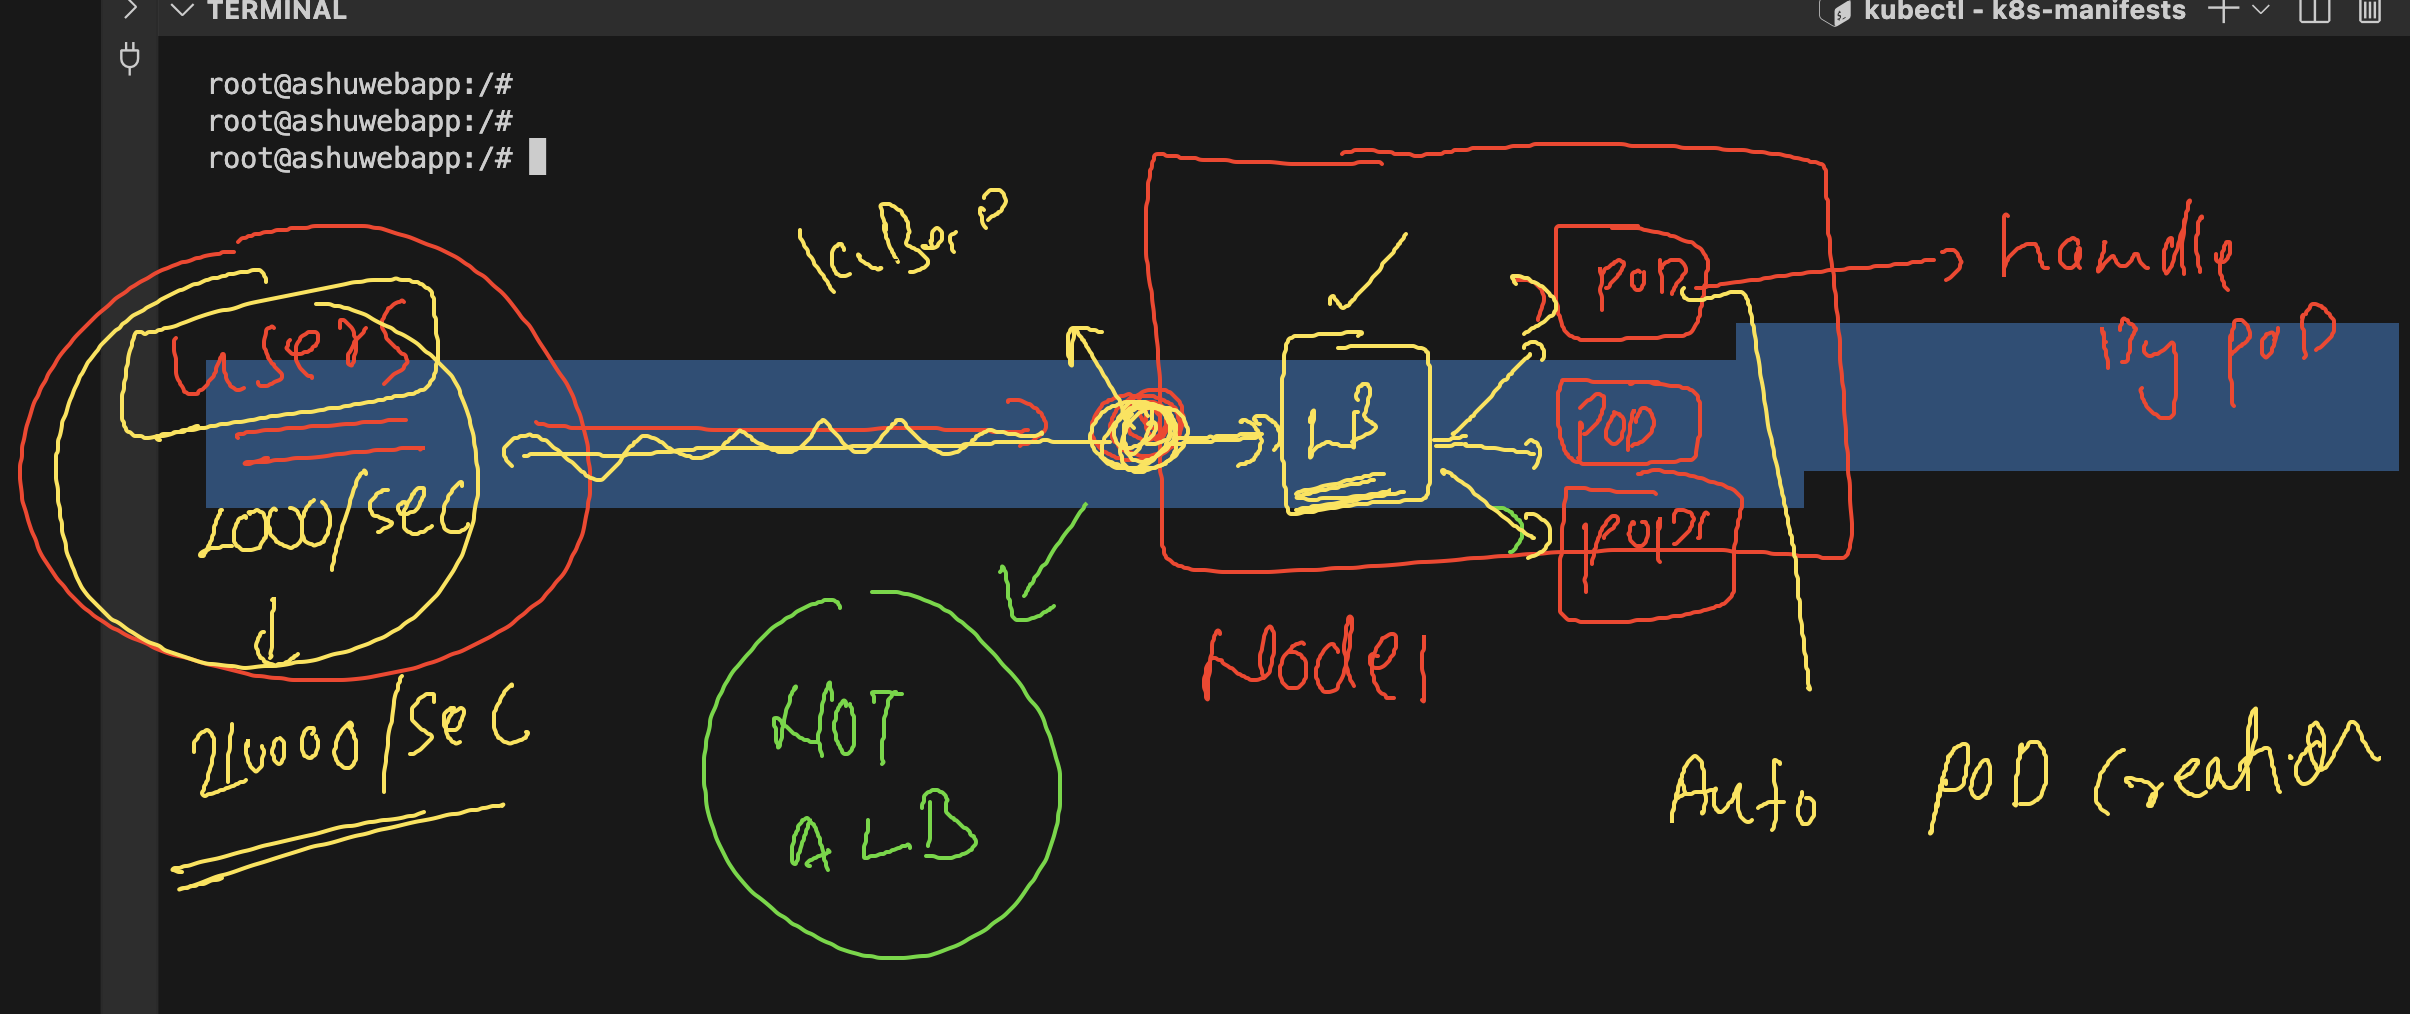 TERMINAL
kubectl - k8s-manifests
root@ashuwebapp:/#
root@ashuwebapp:/#
root@ashuwebapp:/#
users
1000/sec
LB
POD
POD
handle
By POD
Node1
NOT
ALB
Auto POD Creation